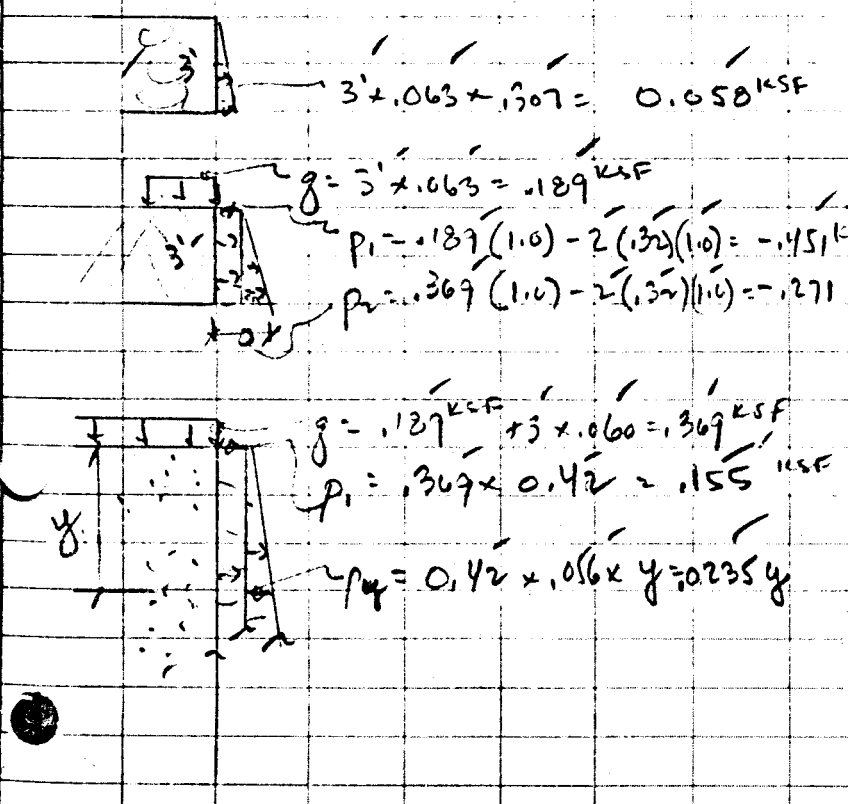 3'
3' x .063 x .307 = 0.058 KSF
q = 3' x .063 = .189 KSF
p₁ = .189 (1.0) - 2 (.32)(1.0) = -.451 K
3'
p₂ = .369 (1.0) - 2 (.32)(1.0) = -.271
0
q = .189 KSF + 3 x .060 = .369 KSF
p₁ = .369 x 0.42 = .155 KSF
y
py = 0.42 x .056 x y = .0235 y